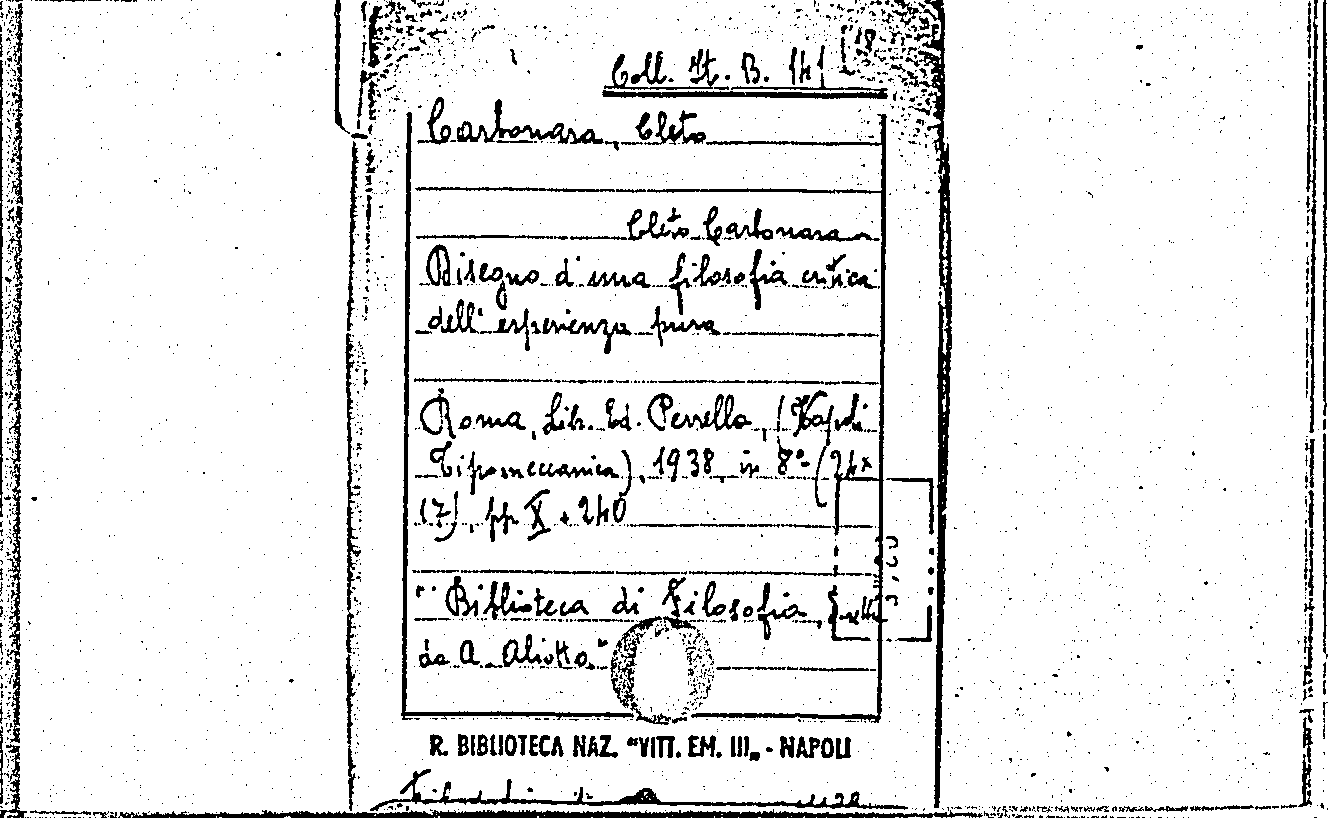 Coll. It. B. 141 (18
Carbonara, Cleto
Cleto Carbonara
Disegno d'una filosofia critica
dell'esperienza pura
Roma, Lib. Ed. Perrella, (Napoli
Tipomeccanica), 1938, in 8º (24x
17), pp. X + 240
"Biblioteca di Filosofia, diretta
da A. Aliotta."
R. BIBLIOTECA NAZ. "VITT. EM. III„ - NAPOLI